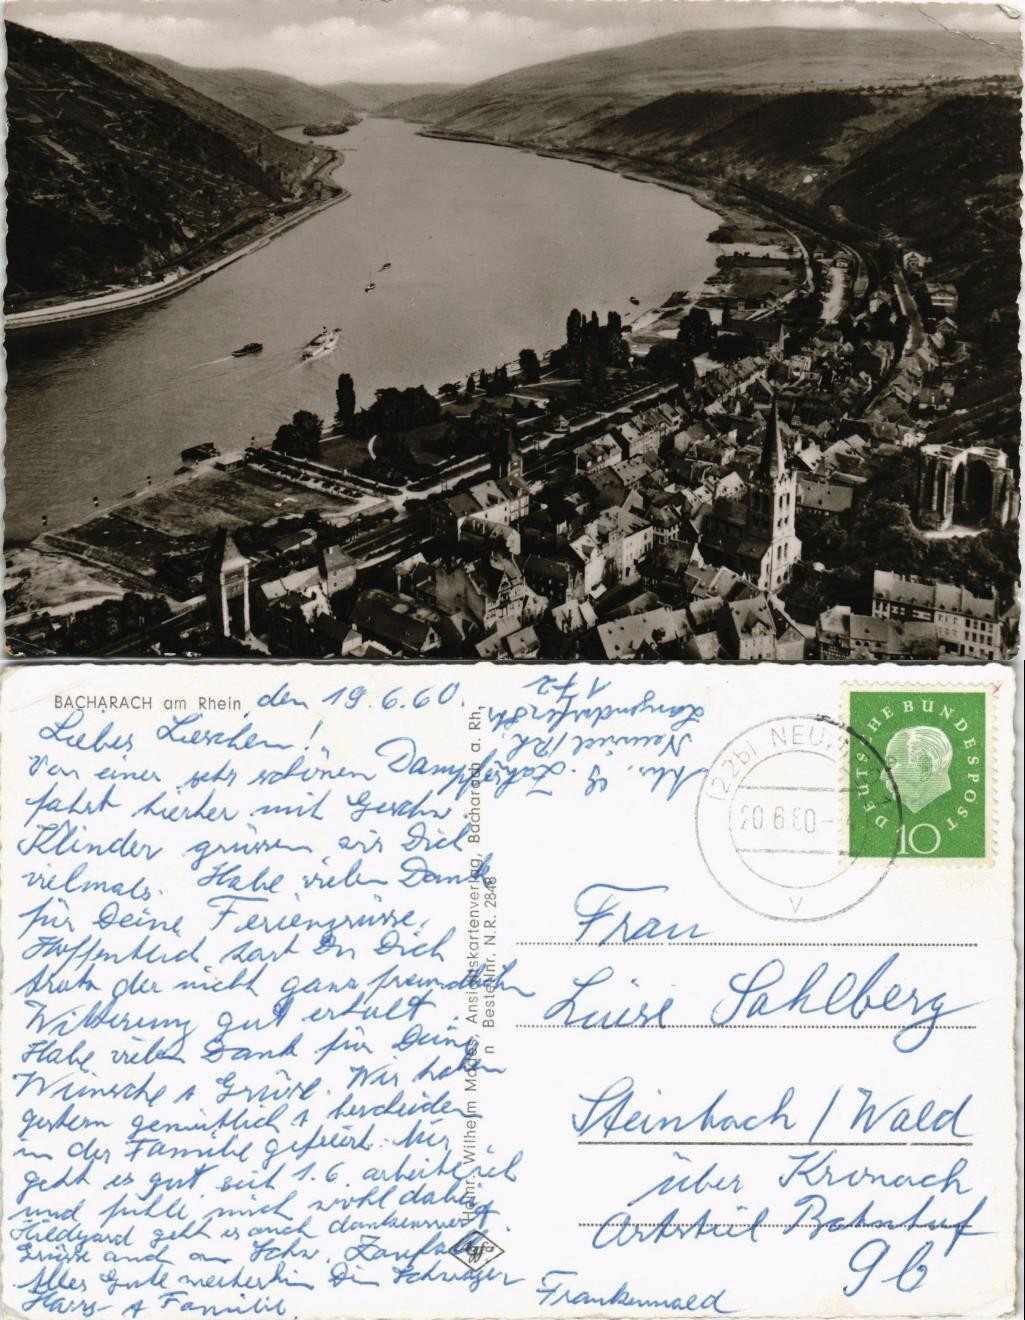 BACHARACH am Rhein, den 19.6.60.
Liebes Lieschen!
Von einer sehr schönen Dampfer
fahrt hierher mit Geschw.
Klinder grüssen wir Dich
vielmals. Habe vielen Dank
für Deine Feriengrüsse.
Hoffentlich hast Du Dich
trotz der nicht ganz freundlichen
Witterung gut erholt.
Habe vielen Dank für Deine
Wünsche + Grüsse. Wir haben
gestern gemütlich + bescheiden
in der Familie gefeiert. Mir
geht es gut seit 1.6. arbeite ich
und fühle mich wohl dabei
Hildegard geht es auch dankenswert
Grüsse auch an Schw.
Alles Gute weiterhin Dein Schwager
Harry + Familie
Abs. G.
Neuwied/Rh.
Langendorferstr.
172
Heinr. Wilhelm Mades, Ansichtskartenverlag, Bacharach a. Rh.
n Bestellnr. N.R. 2848
Agfa
DEUTSCHE BUNDESPOST
10
(22b) NEUWIED 1
20.6.60.
v
Frau
Luise Sahlberg
Steinbach / Wald
über Kronach
Ortsteil Bahnhof
9b
Frankenwald